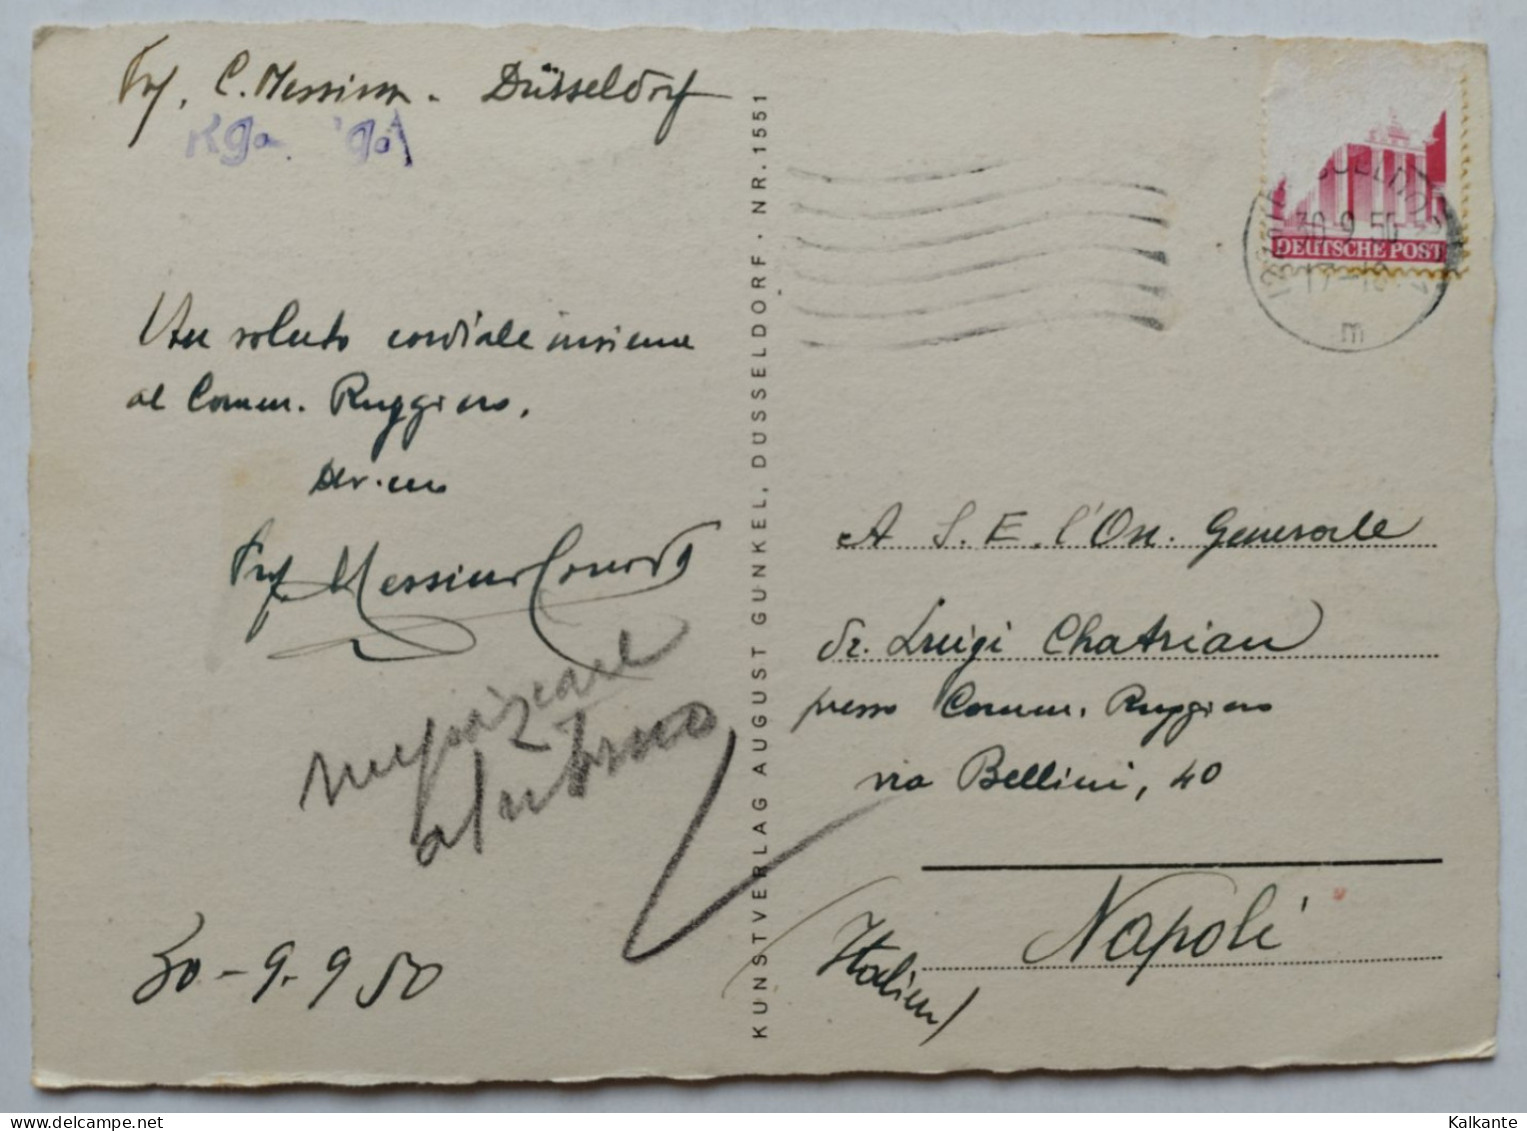 Prof. C. Messina - Düsseldorf
Un saluto cordiale insieme
al Comm. Ruggiero.
Prof. Messina
ringraziare
30-9-950
KUNSTVERLAG AUGUST GUNKEL, DUSSELDORF · NR. 1551
30.9.50
17-18
m
DEUTSCHE POST
A S. E. l'On. Generale
Dr. Luigi Chatrian
presso Comm. Ruggiero
via Bellini, 40
Napoli
(Italien)
Kalkante